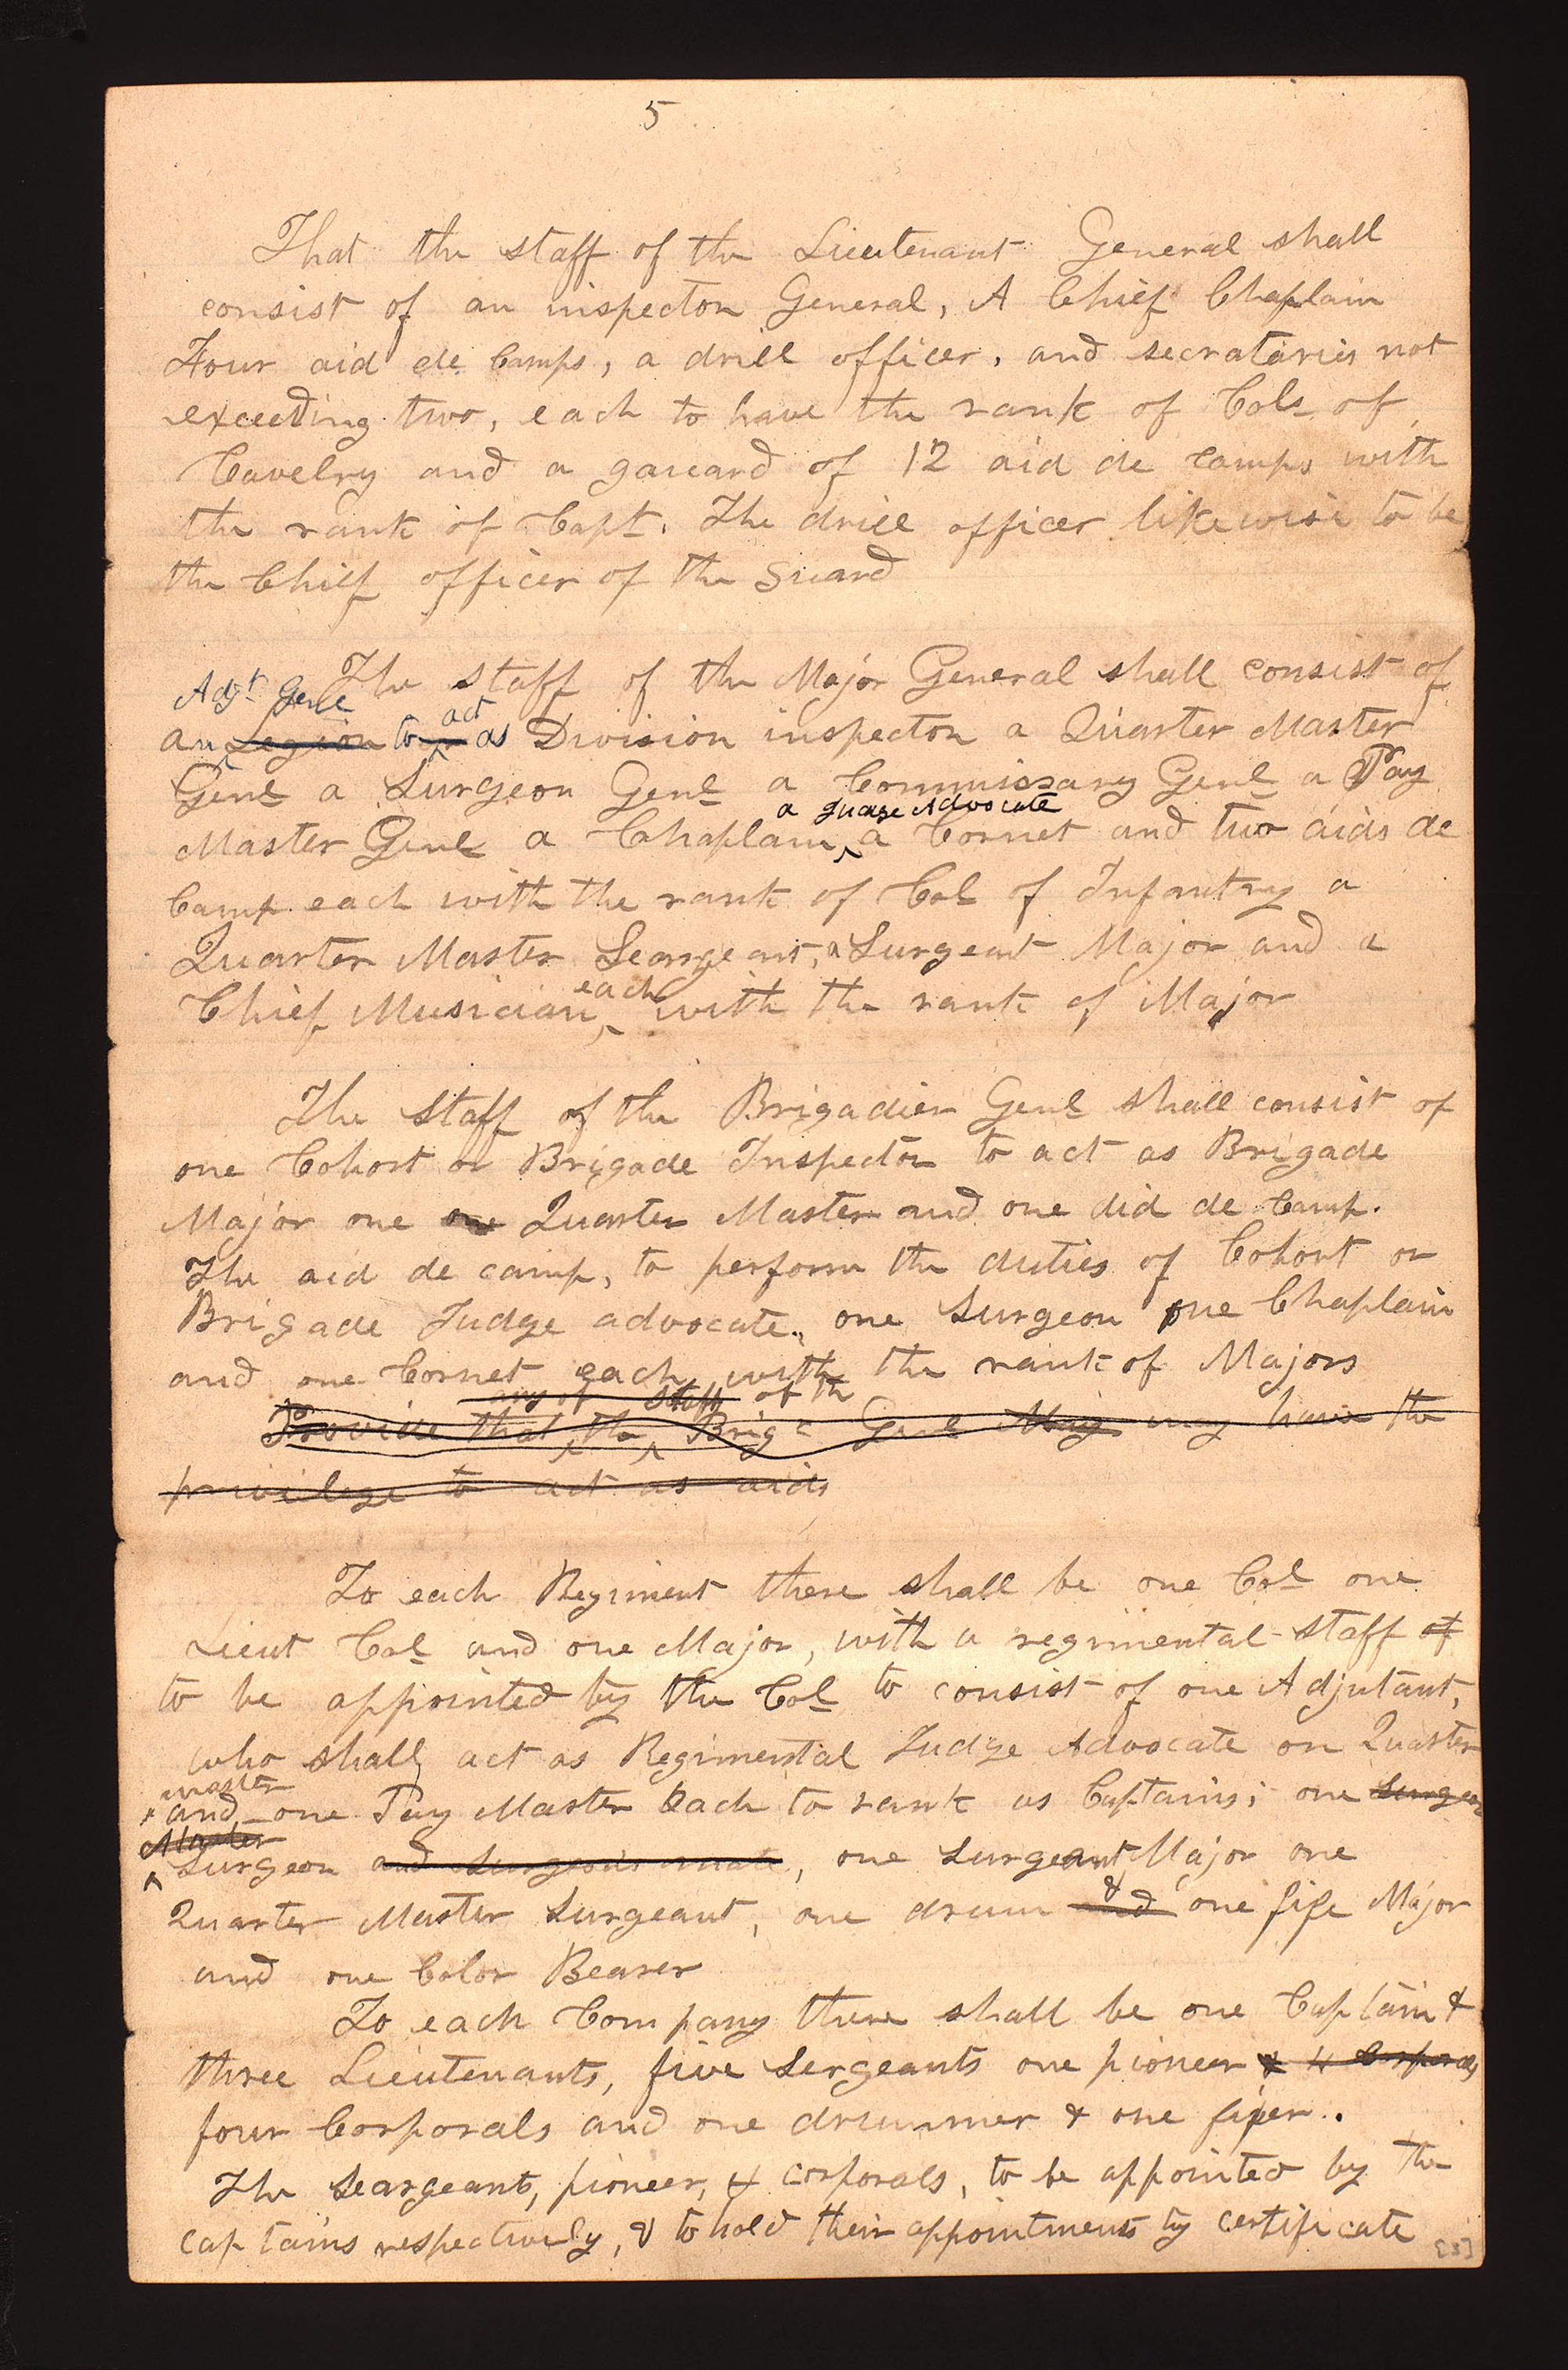 5
That the staff of the Lieutenant General shall
consist of an inspector General, A Chief Chaplain
Four aid de Camps, a drill officer, and secrataries not
exceeding two, each to have the rank of Cols of
Cavelry and a gaueard of 12 aid de camps with
the rank of Capt. The drill officer likewise to be
the Chief officer of the Guard
The staff of the Major General shall consist of
Adjt Genl act
an Legion to as Division inspector a Quarter Master
Genl a Surgeon Genl a Commissary Genl a Pay
a Judge Advocate
Master Genl a Chaplain, a Cornet and two aids de
Camp each with the rank of Col of Infantry a
Quarter Master Seargeant, a Surgeant Major and a
each
Chief Musician with the rank of Major
The Staff of the Brigadier Genl shall consist of
one Cohort or Brigade Inspector to act as Brigade
Major one one Quarter Master and one aid de Camp.
The aid de camp, to perform the duties of Cohort or
Brigade Judge advocate, one Surgeon one Chaplain
and one Cornet each with the rank of Majors
any of staff of th
Provide that the Brig Genl May may have the
privilege to act as aids
To each Regiment there shall be one Col one
Lieut Col and one Major, with a regimental staff of
to be appointed by the Col to consist of one Adjutant,
who shall act as Regimental Judge Advocate on Quarter
master
and one Pay Master Each to rank as Captains; one Surgeon
Master
Surgeon and Surgeons mate, one Surgeant Major one
&
Quarter Master Surgeant, one drum and one fife Major
and one Color Bearer
To each Company there shall be one Captain &
three Lieutenants, five Sergeants one pioneer & 4 Corporals
four Corporals and one drummer & one fifer.
The Seargeants, pioneer, & corporals, to be appointed by the
captains respectively, & to hold their appointments by certificate
[5]